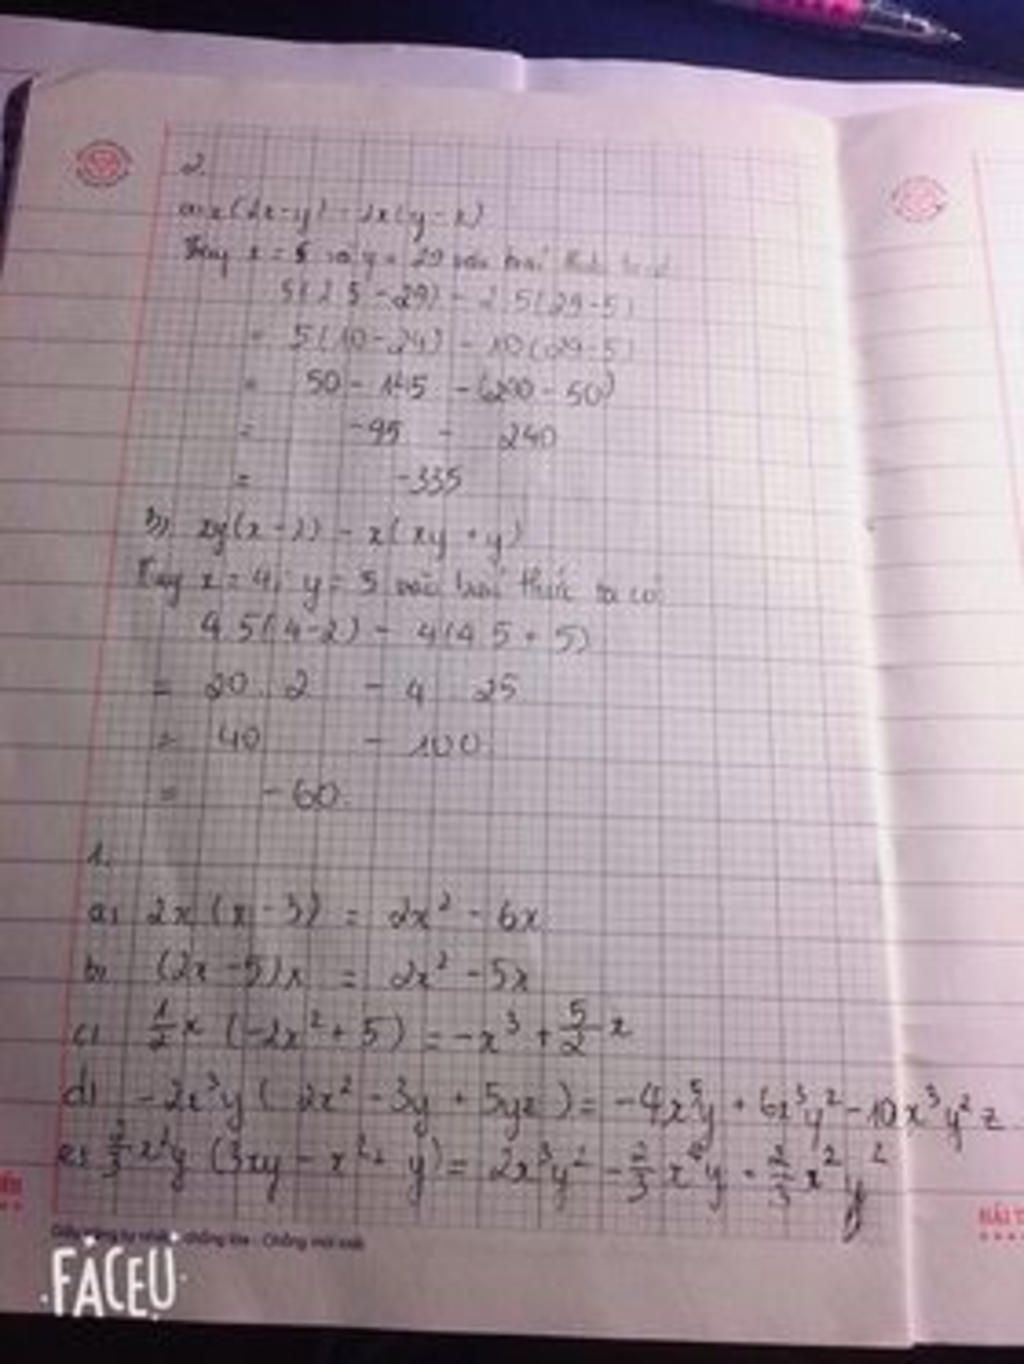 2.
a) x(2x-y) - 2x(y-x)
Thay x = 5 và y = 29 vào biểu thức ta có
5(2.5-29) - 2.5(29-5)
= 5(10-29) - 10(29-5)
= 50 - 145 - (290 - 50)
= -95 - 240
= -335
b) xy(x-2) - x(xy+y)
Thay x = 4, y = 5 vào biểu thức ta có:
4.5(4-2) - 4(4.5+5)
= 20.2 - 4 25
= 40 - 100
= -60.
1.
a) 2x(x-3) = 2x² - 6x
b) (2x-5)x = 2x² - 5x
c) 1/2 x (-2x² + 5) = -x³ + 5/2 x
d) -2x³y (2x² - 3y + 5yz) = -4x⁵y + 6x³y² - 10x³y²z
e) 2/3 x²y (3xy - x² + y) = 2x³y² - 2/3 x⁴y + 2/3 x²y²
HẢI T
FACEU